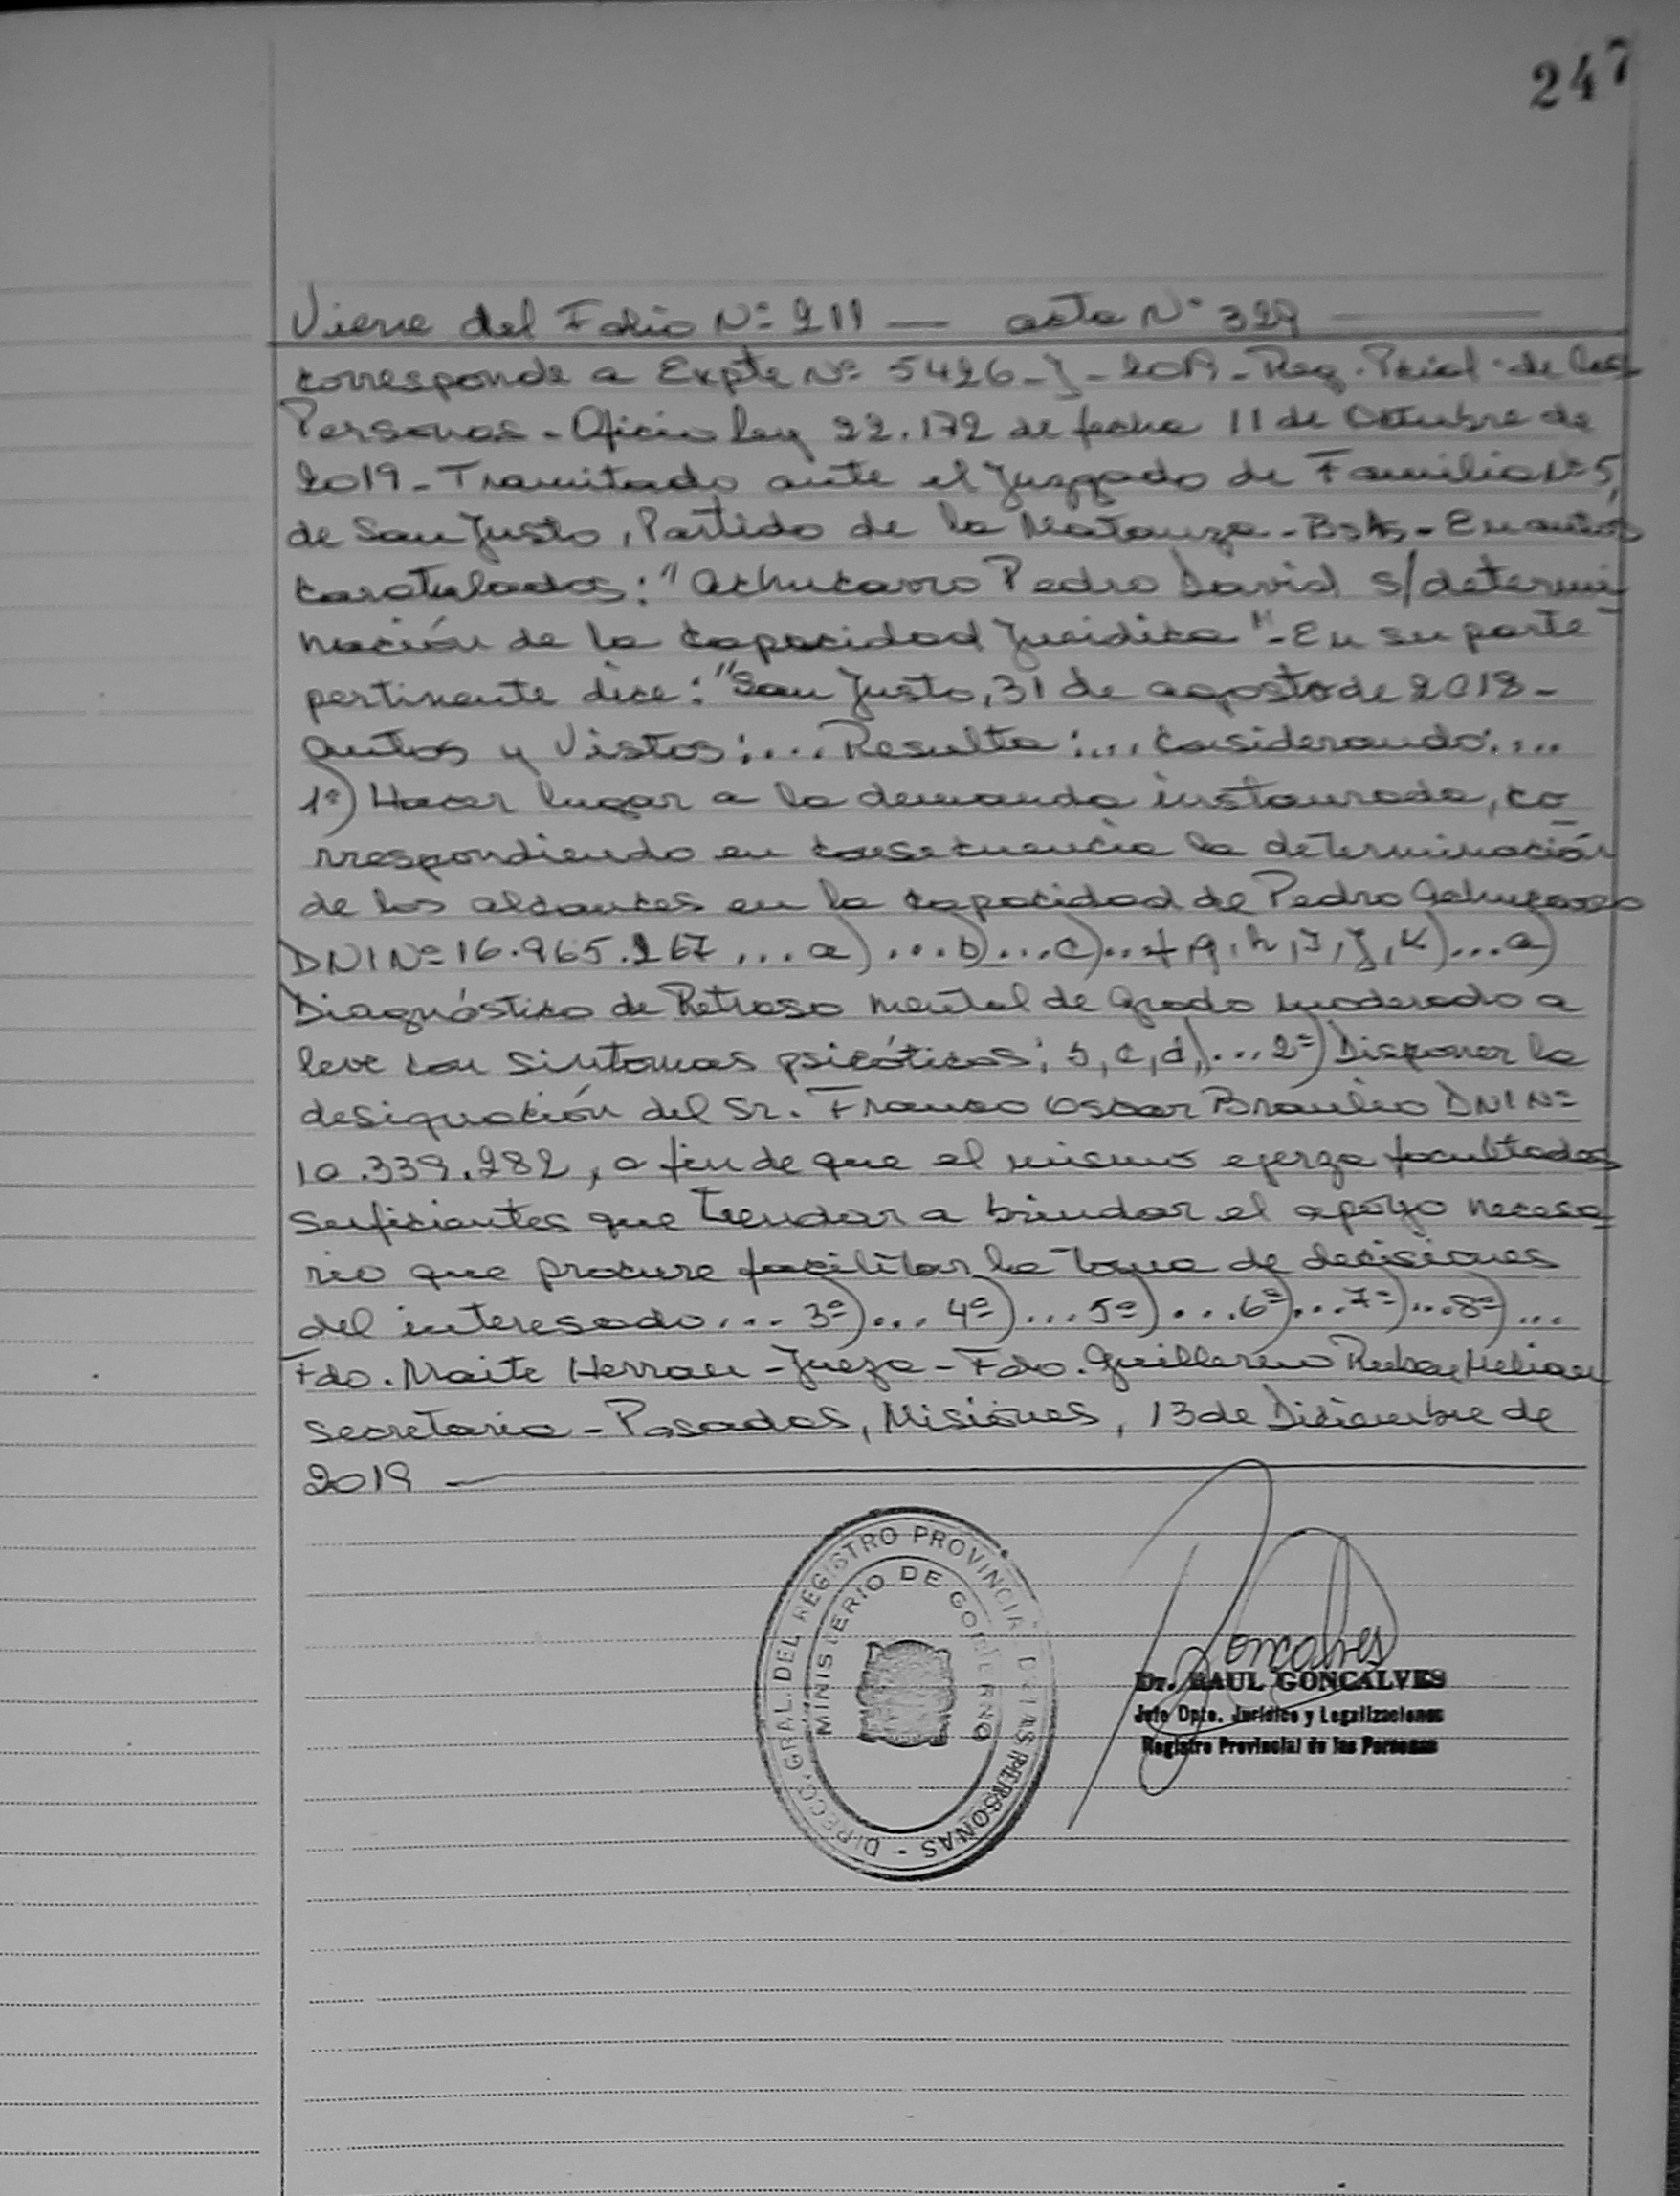 247
Viene del Folio Nº 211 — acta Nº 329
corresponde a Expte Nº 5426-J-2019-Reg. Pcial. de las
Personas - Oficio Ley 22.172 de fecha 11 de Octubre de
2019 - Tramitado ante el Juzgado de Familia Nº 5,
de San Justo, Partido de la Matanza - BsAs - En autos
caratulados: "Achucarro Pedro David s/determi
nación de la capacidad Juridica" - En su parte
pertinente dice: "San Justo, 31 de agosto de 2018 -
autos y Vistos:... Resulta:... Considerando:...
1º) Hacer lugar a la demanda instaurada, co
rrespondiendo en consecuencia la determinación
de los alcances en la capacidad de Pedro Achucarro
DNI Nº 16.965.267 ... a) ... b) ... c) ... f, g, h, I, J, K) ... a)
Diagnóstico de Retraso mental de grado moderado a
leve con sintomas psicóticos; b, c, d, ... 2º) Disponer la
designación del Sr. Franco Oscar Braulio DNI Nº
10.339.282, a fin de que el mismo ejerza facultades
suficientes que tiendan a brindar el apoyo necesa
rio que procure facilitar la toma de decisiones
del interesado ... 3º) ... 4º) ... 5º) ... 6º) ... 7º) ... 8º) ...
Fdo. Maite Herran - Jueza - Fdo. Guillermo Ruben Melian
secretario - Posadas, Misiones, 13 de Diciembre de
2019 —
DIRECC. GRAL. DEL REGISTRO PROVINCIAL DE LAS PERSONAS -
MINISTERIO DE GOBIERNO
Goncalves
Dr. RAUL GONCALVES
Jefe Dpto. Jurídico y Legalizaciones
Registro Provincial de las Personas